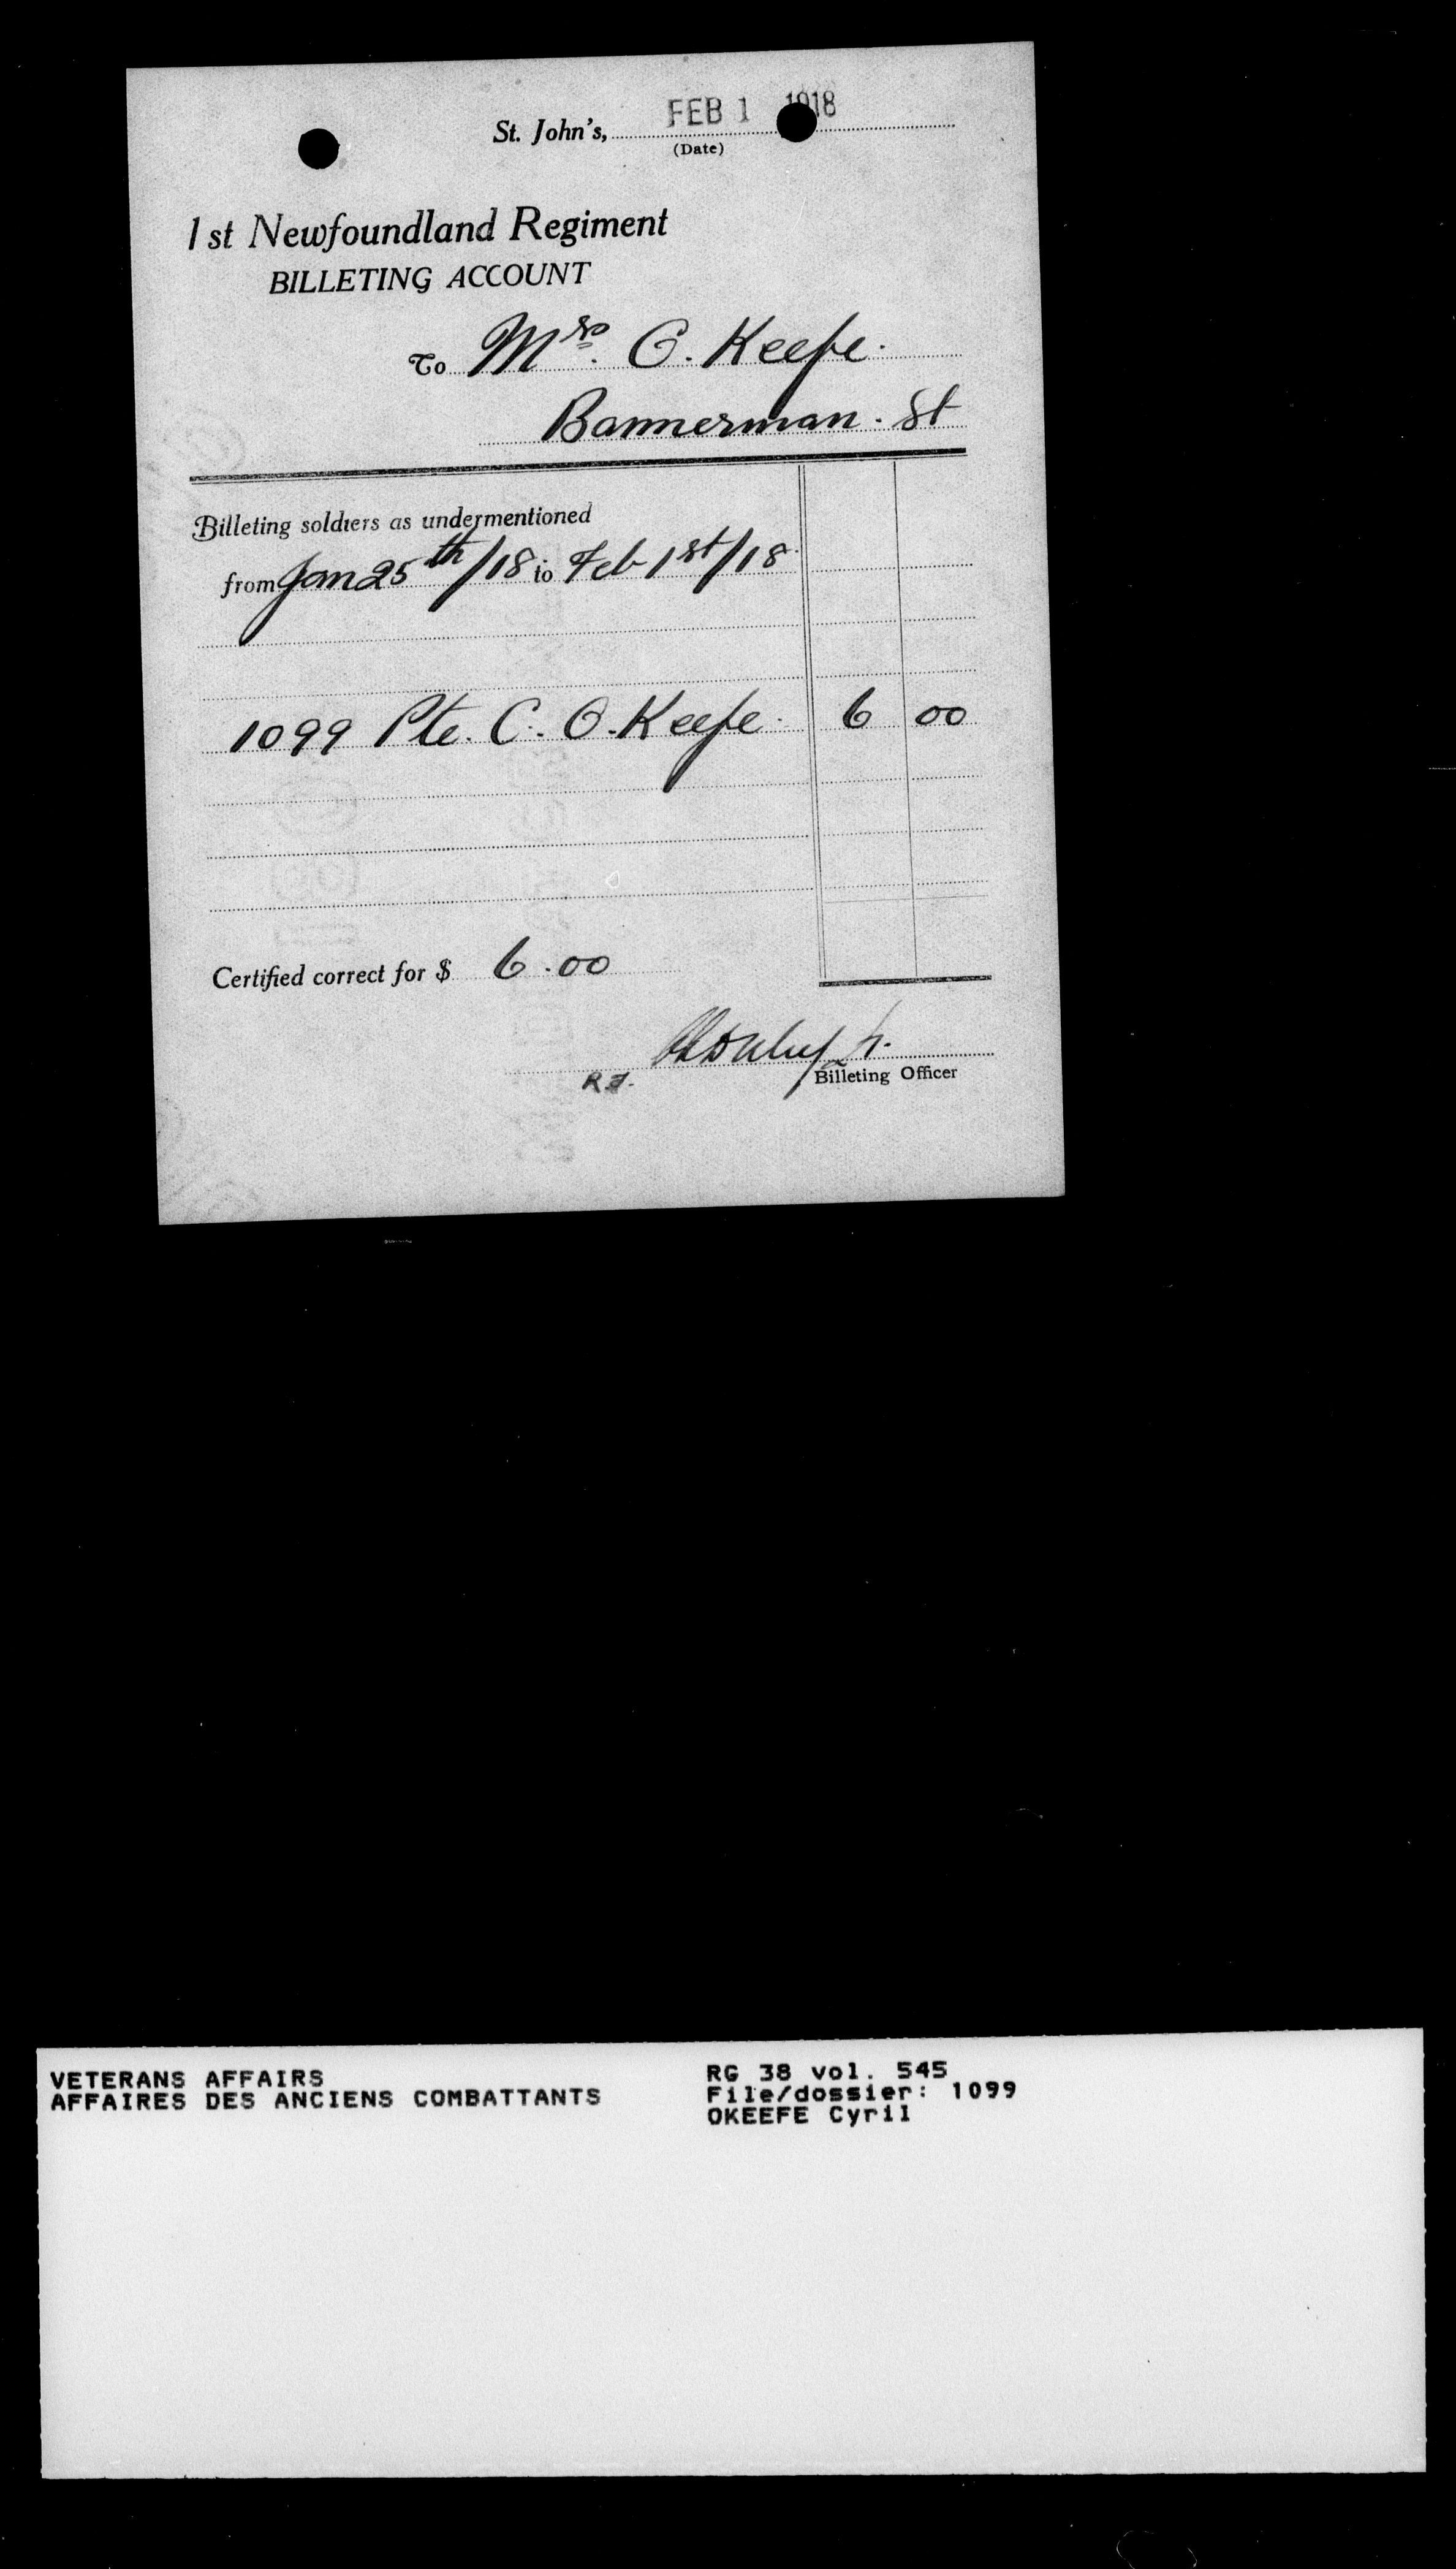 St. John's, FEB 1 1918
(Date)
1st Newfoundland Regiment
BILLETING ACCOUNT
To Mrs. O. Keefe.
Bannerman. St
Billeting soldiers as undermentioned
from Jan 25th/18 to Feb 1st/18
1099 Pte. C. O. Keefe. 6 00
Certified correct for $ 6.00
Billeting Officer
VETERANS AFFAIRS
AFFAIRES DES ANCIENS COMBATTANTS
RG 38 vol. 545
File/dossier: 1099
OKEEFE Cyril